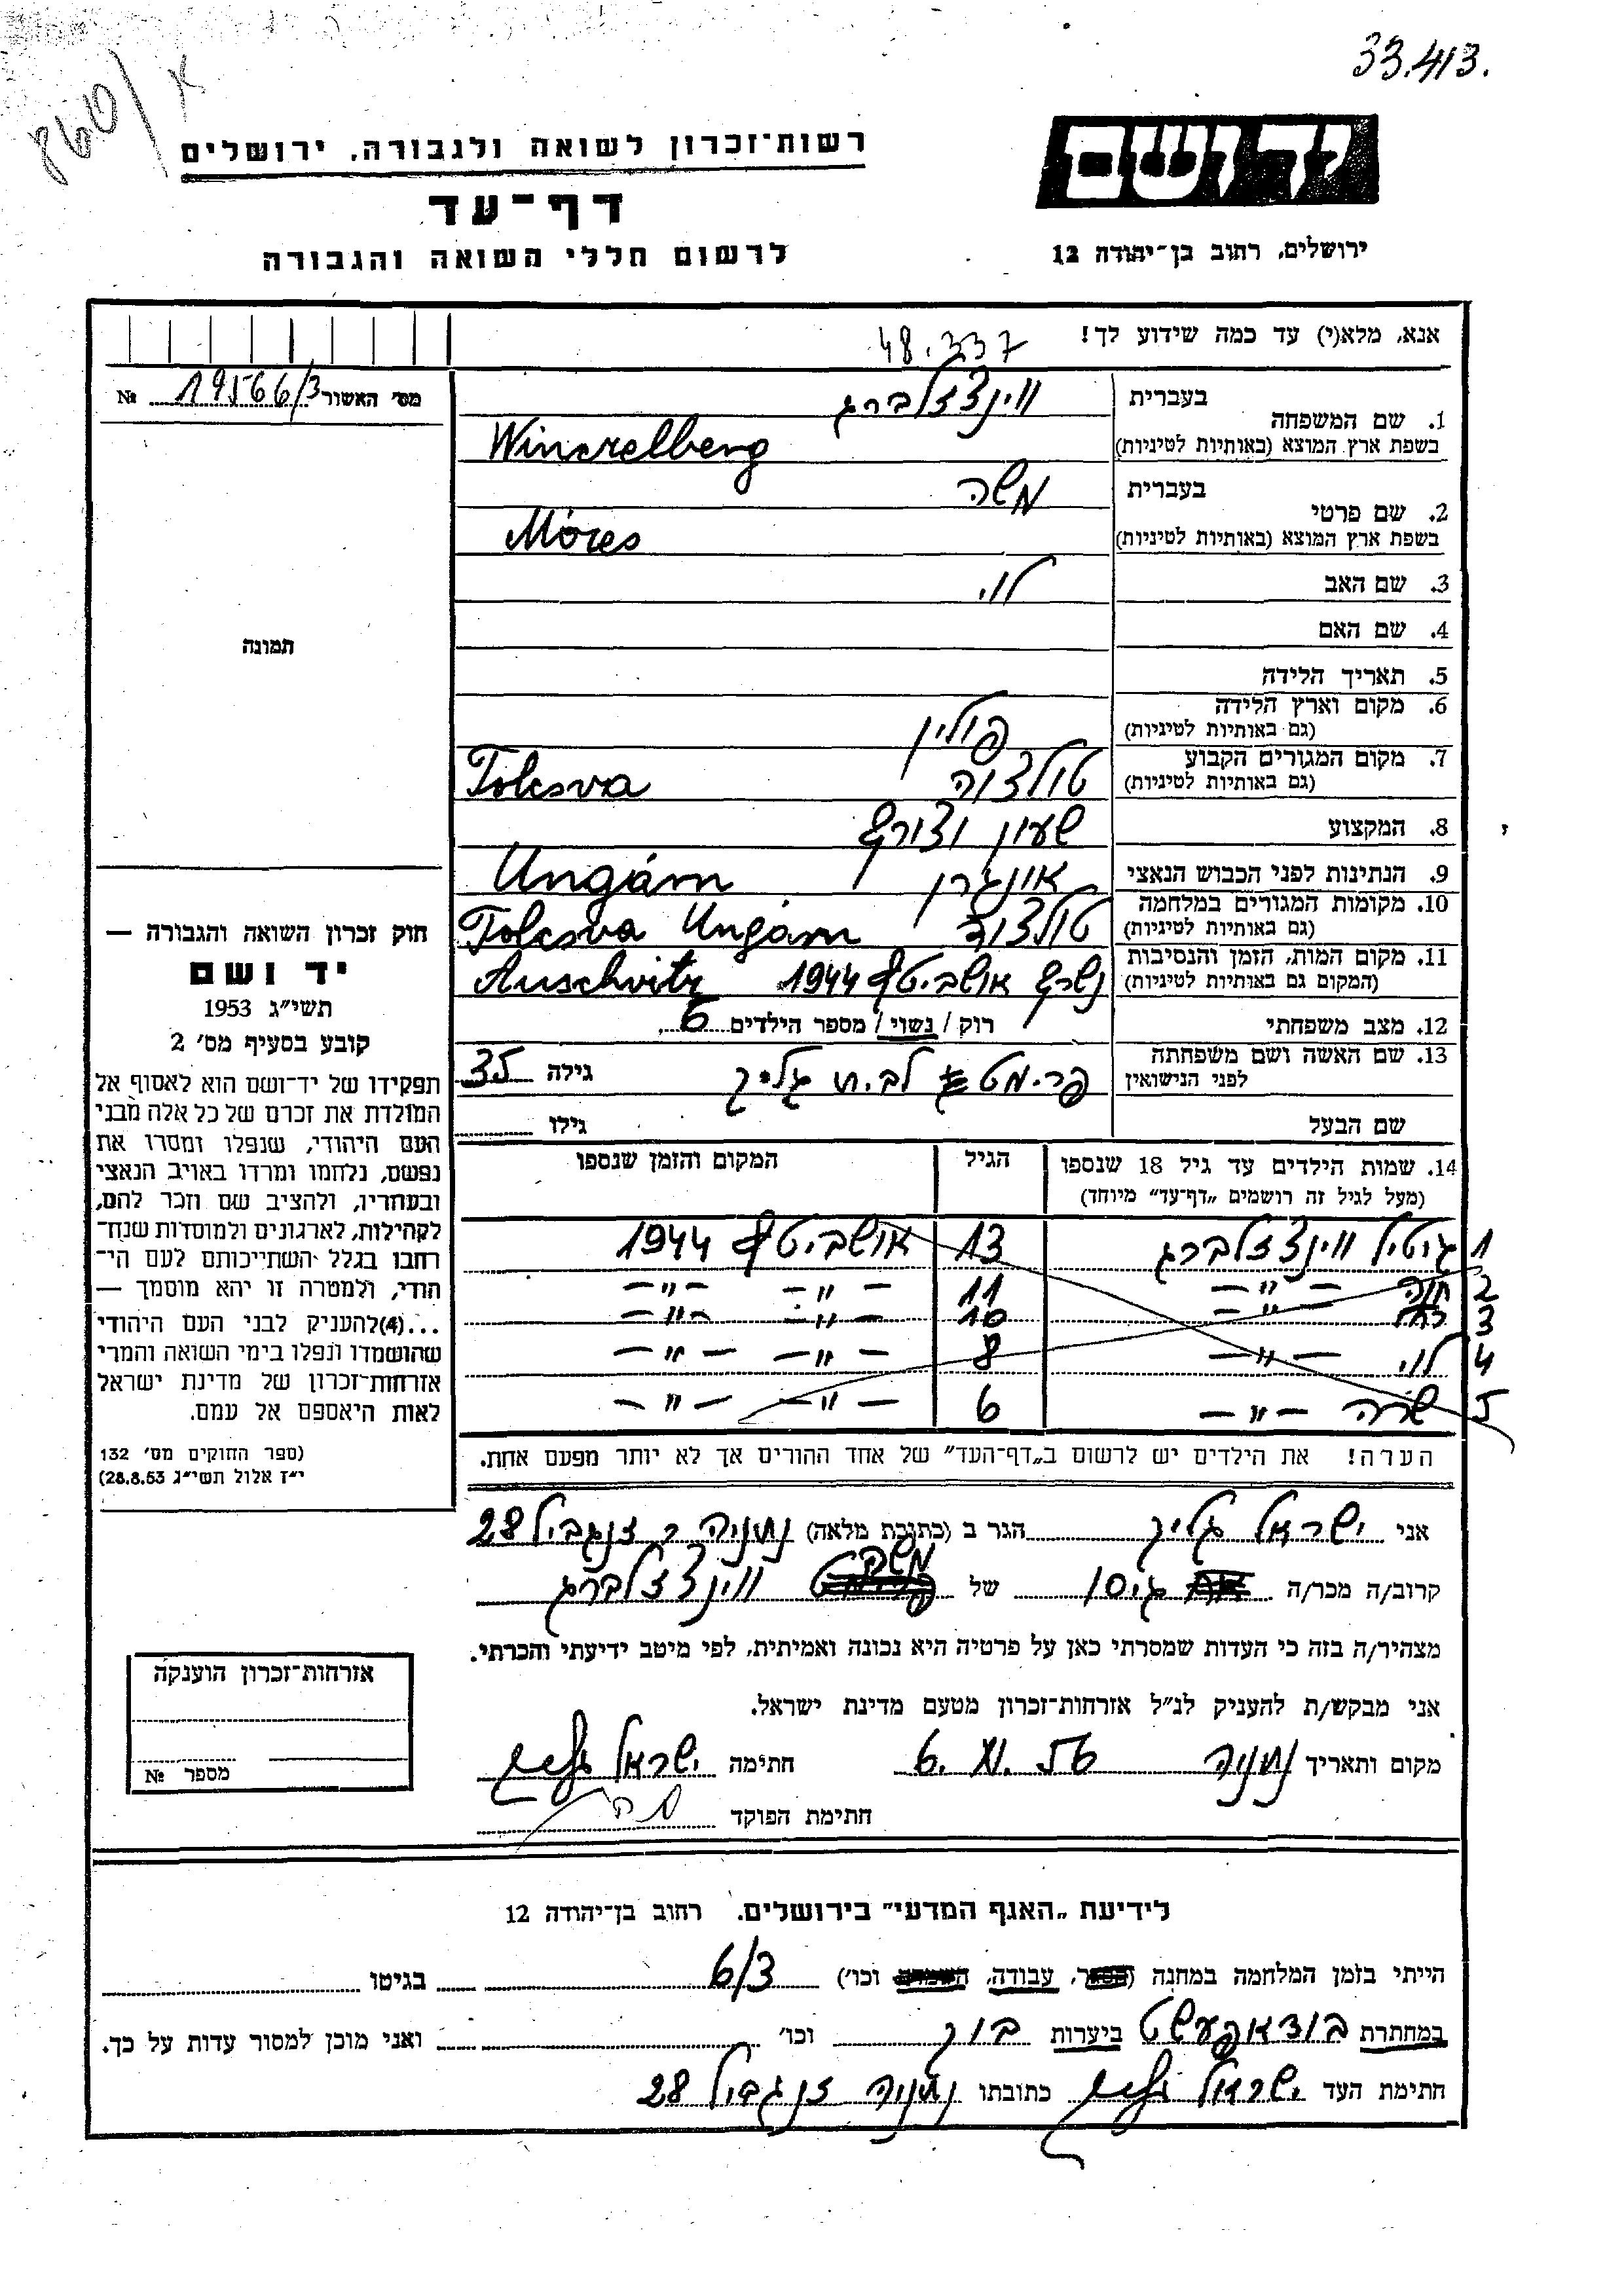 33.413.
860/א
יד ושם
רשות־זכרון לשואה ולגבורה, ירושלים
דף־עד
לרשום חללי השואה והגבורה
ירושלים, רחוב בן־יהודה 12
אנא, מלא(י) עד כמה שידוע לך!
48.337
מס׳ האשור 19566/3 №
1. שם המשפחה
בעברית ווינצזלברג
בשפת ארץ המוצא (באותיות לטיניות) Winczelberg
2. שם פרטי
בעברית משה
בשפת ארץ המוצא (באותיות לטיניות) Móres
3. שם האב לוי
4. שם האם
5. תאריך הלידה
6. מקום וארץ הלידה
(גם באותיות לטיניות) פולין
7. מקום המגורים הקבוע
(גם באותיות לטיניות) טולצוה Tolcsva
8. המקצוע שעון וצורף
9. הנתינות לפני הכבוש הנאצי אונגרן Ungárn
10. מקומות המגורים במלחמה
(גם באותיות לטיניות) טולצוה Tolcsva Ungárn
11. מקום המות, הזמן והנסיבות
(המקום גם באותיות לטיניות) נשרף אושביטץ 1944 Auschvitz
12. מצב משפחתי רוק / נשוי / מספר הילדים 6.
13. שם האשה ושם משפחתה
לפני הנישואין לב.ת גליק גילה 35
שם הבעל גילו
14. שמות הילדים עד גיל 18 שנספו
(מעל לגיל זה רושמים „דף־עד״ מיוחד)
הגיל
המקום והזמן שנספו
1 גיטיל ווינצזלברג 13 אושביטץ 1944
2 חנה — ״ — 11 — ״ — — ״ —
3 רחל — ״ — 10 — ״ — — ״ —
4 לוי — ״ — 8 — ״ — — ״ —
5 שרה — ״ — 6 — ״ — — ״ —
הערה! את הילדים יש לרשום ב„דף־העד״ של אחד ההורים אך לא יותר מפעם אחת.
תמונה
חוק זכרון השואה והגבורה —
יד ושם
תשי״ג 1953
קובע בסעיף מס׳ 2
תפקידו של יד־ושם הוא לאסוף אל
המולדת את זכרם של כל אלה מבני
העם היהודי, שנפלו ומסרו את
נפשם, נלחמו ומרדו באויב הנאצי
ובעוזריו, ולהציב שם וזכר להם,
לקהילות, לארגונים ולמוסדות שנח־
רבו בגלל השתייכותם לעם הי־
הודי, ולמטרה זו יהא מוסמך —
...(4)להעניק לבני העם היהודי
שהושמדו ונפלו בימי השואה והמרי
אזרחות־זכרון של מדינת ישראל
לאות היאספם אל עמם.
(ספר החוקים מס׳ 132
י״ז אלול תשי״ג 28.8.53)
אני ישראל גליק הגר ב (כתובת מלאה) נתניה ר זנגביל 28
קרוב/ה מכר/ה גיסו של משה ווינצזלברג
מצהיר/ה בזה כי העדות שמסרתי כאן על פרטיה היא נכונה ואמיתית, לפי מיטב ידיעתי והכרתי.
אני מבקש/ת להעניק לנ״ל אזרחות־זכרון מטעם מדינת ישראל.
מקום ותאריך נתניה חתימה ישראל גליק
חתימת הפוקד
אזרחות־זכרון הוענקה
מספר №
לידיעת „האגף המדעי״ בירושלים. רחוב בן־יהודה 12
הייתי בזמן המלחמה במחנה (הסגר, עבודה, השמדה וכו׳) 6/3 בגיטו
במחתרת בודאפעשט ביערות בוק וכו׳ ואני מוכן למסור עדות על כך.
חתימת העד ישראל גליק כתובתו נתניה זנגביל 28